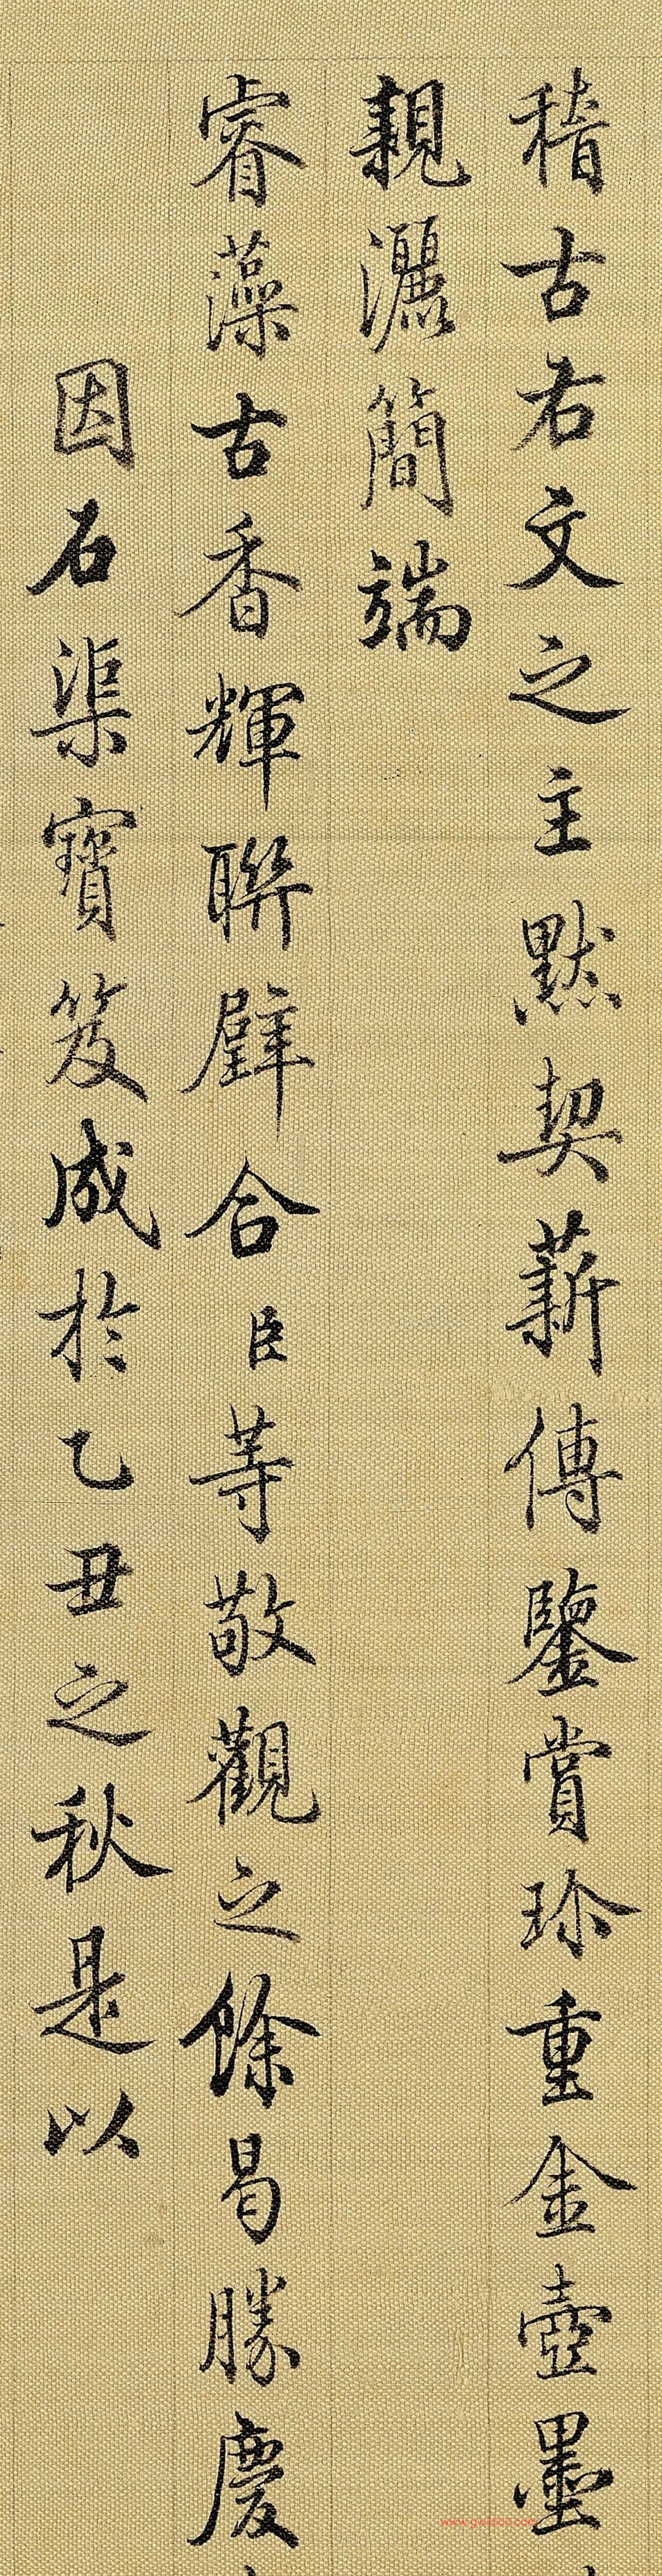 稽古右文之主默契薪傳鑒賞珍重金壺墨
親灑簡端
睿藻古香輝聯璧合臣等敬觀之餘曷勝慶
因石渠寶笈成於乙丑之秋是以
www.gwl500.com